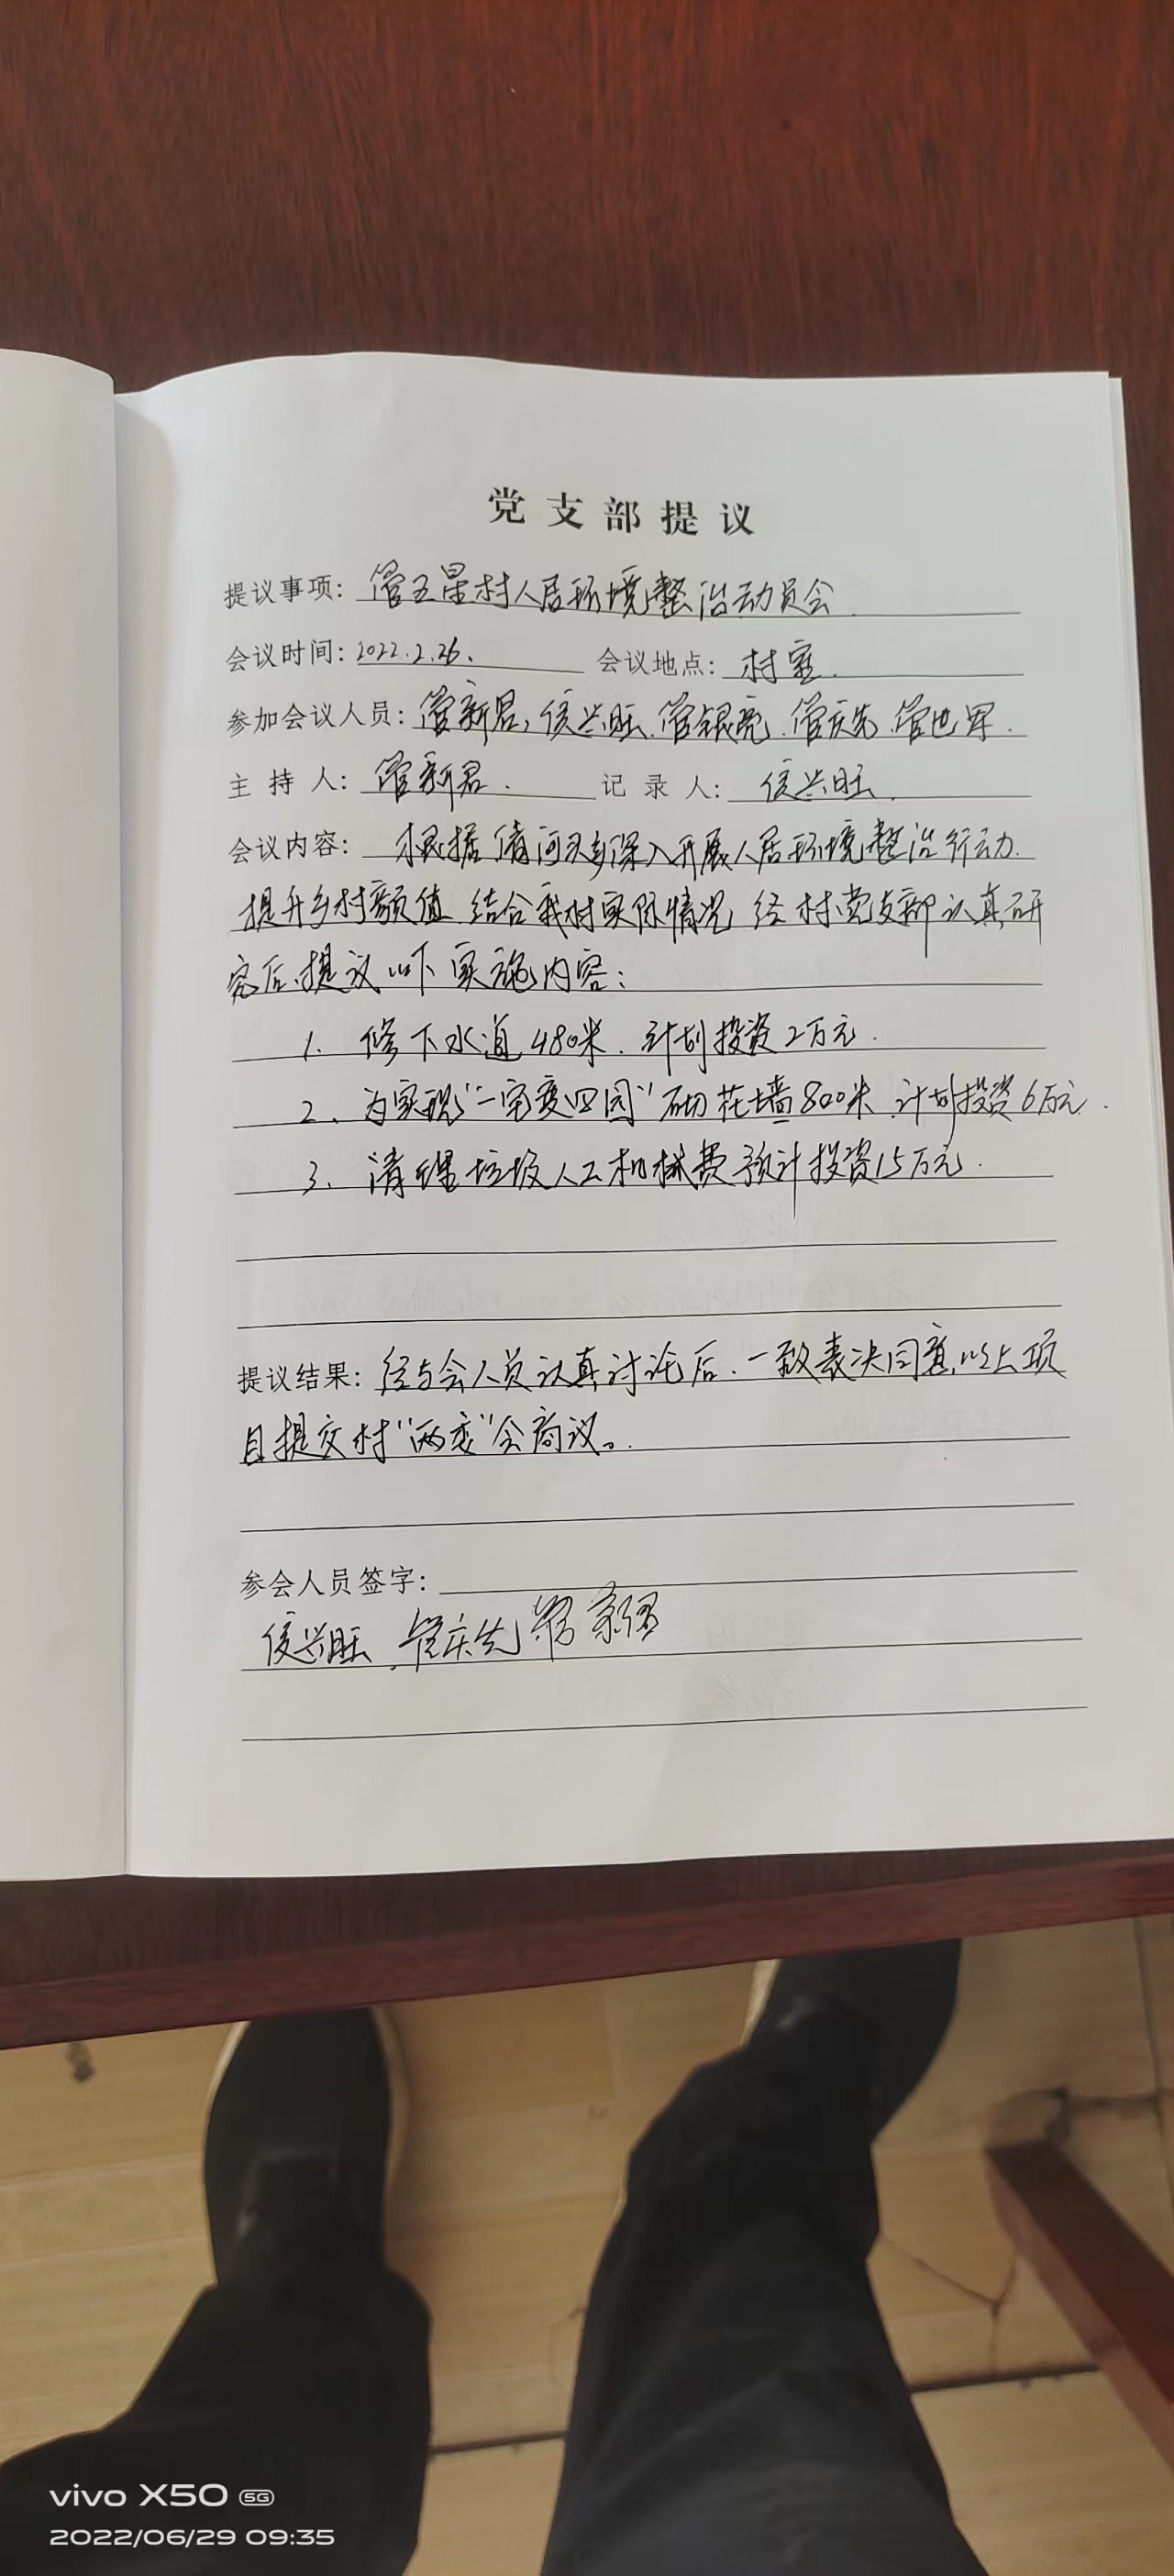 党支部提议
提议事项: 管五星村人居环境整治动员会.
会议时间: 2022.2.26. 会议地点: 村室.
参加会议人员: 管新君, 侯兴旺. 管银亮. 管庆先. 管世军.
主持人: 管新君. 记录人: 侯兴旺.
会议内容: 根据清河头乡深入开展人居环境整治行动.
提升乡村颜值 结合我村实际情况, 经村党支部认真研
究后, 提议以下实施内容:
1. 修下水道480米. 计划投资2万元.
2、为实现"一宅变四园"砌花墙800米. 计划投资6万元.
3、清理垃圾人工机械费预计投资15万元.
提议结果: 经与会人员认真讨论后. 一致表决同意, 以上项
目提交村"两委"会商议。
参会人员签字:
侯兴旺. 管庆先
vivo X50 5G
2022/06/29 09:35